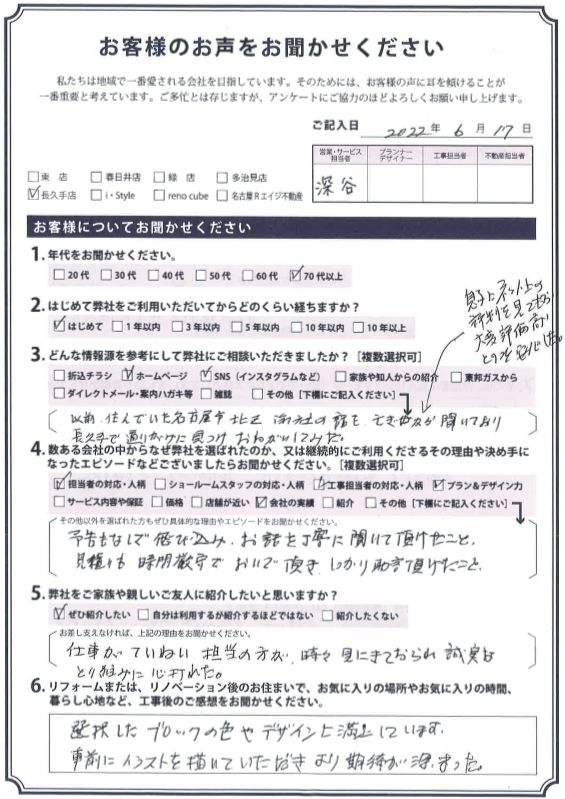 お客様のお声をお聞かせください
私たちは地域で一番愛される会社を目指しています。そのためには、お客様の声に耳を傾けることが
一番重要と考えています。ご多忙とは存じますが、アンケートにご協力のほどよろしくお願い申し上げます。
ご記入日 2022年 6月 17日
営業・サービス担当者 プランナーデザイナー 工事担当者 不動産担当者
深谷
□東 店 □春日井店 □緑 店 □多治見店
☑長久手店 □i・Style □reno cube □名古屋Rエイジ不動産
お客様についてお聞かせください
1. 年代をお聞かせください。
□20代 □30代 □40代 □50代 □60代 ☑70代以上
2. はじめて弊社をご利用いただいてからどのくらい経ちますか?
☑はじめて □1年以内 □3年以内 □5年以内 □10年以内 □10年以上
息子とネット上の
評判を見ても
大変評価高
3. どんな情報源を参考にして弊社にご相談いただきましたか?[複数選択可]
□折込チラシ ☑ホームページ ☑SNS(インスタグラムなど) □家族や知人からの紹介 □東邦ガスから
□ダイレクトメール・案内ハガキ等 □雑誌 □その他[下欄にご記入ください]
以前、住んでいた名古屋市北区 御社の話を 聞いており
長久手で通りがけに見つけ おねがいしてみた。
4. 数ある会社の中からなぜ弊社を選ばれたのか、又は継続的にご利用くださるその理由や決め手に
なったエピソードなどございましたらお聞かせください。[複数選択可]
☑担当者の対応・人柄 □ショールームスタッフの対応・人柄 ☑工事担当者の対応・人柄 ☑プラン&デザイン力
□サービス内容や保証 □価格 □店舗が近い ☑会社の実績 □紹介 □その他[下欄にご記入ください]
その他以外を選ばれた方もぜひ具体的な理由やエピソードをお聞かせください。
予告もなしで飛び込み、お話を丁寧に聞いて頂けたこと、
見積りも時間厳守でおいで頂き、しっかり助言頂けたこと、
5. 弊社をご家族や親しいご友人に紹介したいと思いますか?
☑ぜひ紹介したい □自分は利用するが紹介するほどではない □紹介したくない
お差し支えなければ、上記の理由をお聞かせください。
仕事がていねい 担当の方が、時々見にきておられ 誠実な
とり組みに心打れた。
6. リフォームまたは、リノベーション後のお住まいで、お気に入りの場所やお気に入りの時間、
暮らし心地など、工事後のご感想をお聞かせください。
選択したブロックの色やデザインに満足しています。
事前にイラストを描いていただきより期待が深まった。